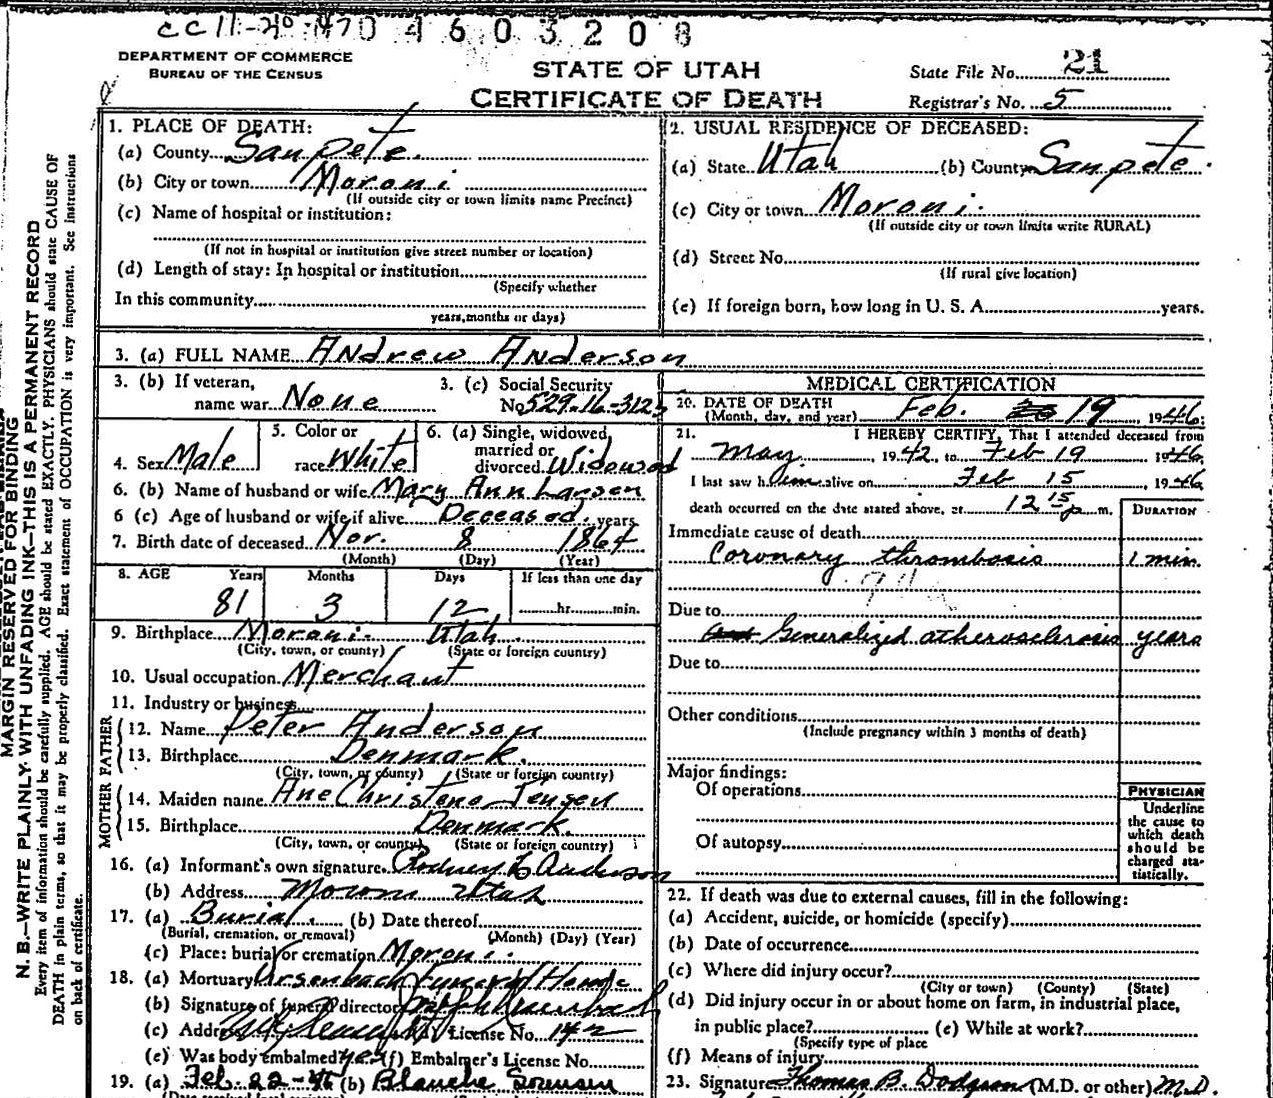 CC 11-20-47 0 4 6 0 3 2 0 8
DEPARTMENT OF COMMERCE
BUREAU OF THE CENSUS
STATE OF UTAH
CERTIFICATE OF DEATH
State File No. 21
Registrar's No. 5
1. PLACE OF DEATH:
(a) County Sanpete.
(b) City or town Moroni
(If outside city or town limits name Precinct)
(c) Name of hospital or institution:
(If not in hospital or institution give street number or location)
(d) Length of stay: In hospital or institution
(Specify whether
In this community
years, months or days)
2. USUAL RESIDENCE OF DECEASED:
(a) State Utah (b) County Sanpete.
(c) City or town Moroni.
(If outside city or town limits write RURAL)
(d) Street No.
(If rural give location)
(e) If foreign born, how long in U. S. A. years.
3. (a) FULL NAME Andrew Anderson
3. (b) If veteran,
name war None
3. (c) Social Security
No. 529-16-3123
4. Sex Male
5. Color or
race White
6. (a) Single, widowed,
married or
divorced. Widowed
6. (b) Name of husband or wife Mary Ann Larsen
6 (c) Age of husband or wife if alive Deceased. years
7. Birth date of deceased Nov. 8 1864
(Month) (Day) (Year)
8. AGE Years Months Days If less than one day
81 3 12 hr. min.
9. Birthplace Moroni. Utah.
(City, town, or county) (State or foreign country)
10. Usual occupation Merchant
11. Industry or business
MOTHER FATHER
12. Name Peter Anderson
13. Birthplace Denmark.
(City, town, or county) (State or foreign country)
14. Maiden name Ane Christene Jensen
15. Birthplace Denmark.
(City, town, or county) (State or foreign country)
16. (a) Informant's own signature Rodney E Anderson
(b) Address Moroni Utah
17. (a) Burial. (b) Date thereof
(Burial, cremation, or removal) (Month) (Day) (Year)
(c) Place: burial or cremation Moroni.
18. (a) Mortuary Ursenbach Funeral Home
(b) Signature of funeral director
(c) Address License No. 142
(e) Was body embalmed yes (f) Embalmer's License No.
19. (a) Feb. 22-46 (b) Blanche Sorensen
MEDICAL CERTIFICATION
20. DATE OF DEATH
(Month, day, and year) Feb. 19, 1946.
21. I HEREBY CERTIFY, That I attended deceased from
May, 1942, to Feb 19 1946
I last saw him alive on Feb 15, 1946
death occurred on the date stated above, at 12 15 p m.
DURATION
Immediate cause of death
Coronary thrombosis 1 min
Due to
Generalized atherosclerosis years
Due to
Other conditions
(Include pregnancy within 3 months of death)
Major findings:
Of operations
Of autopsy
PHYSICIAN
Underline
the cause to
which death
should be
charged sta-
tistically.
22. If death was due to external causes, fill in the following:
(a) Accident, suicide, or homicide (specify)
(b) Date of occurrence
(c) Where did injury occur?
(City or town) (County) (State)
(d) Did injury occur in or about home on farm, in industrial place,
in public place? (e) While at work?
(Specify type of place
(f) Means of injury
23. Signature Thomas B. Dodgson (M.D. or other) M.D.
MARGIN RESERVED FOR BINDING
N. B.—WRITE PLAINLY WITH UNFADING INK—THIS IS A PERMANENT RECORD
Every item of information should be carefully supplied. AGE should be stated EXACTLY. PHYSICIANS should state CAUSE OF
DEATH in plain terms, so that it may be properly classified. Exact statement of OCCUPATION is very important. See instructions
on back of certificate.